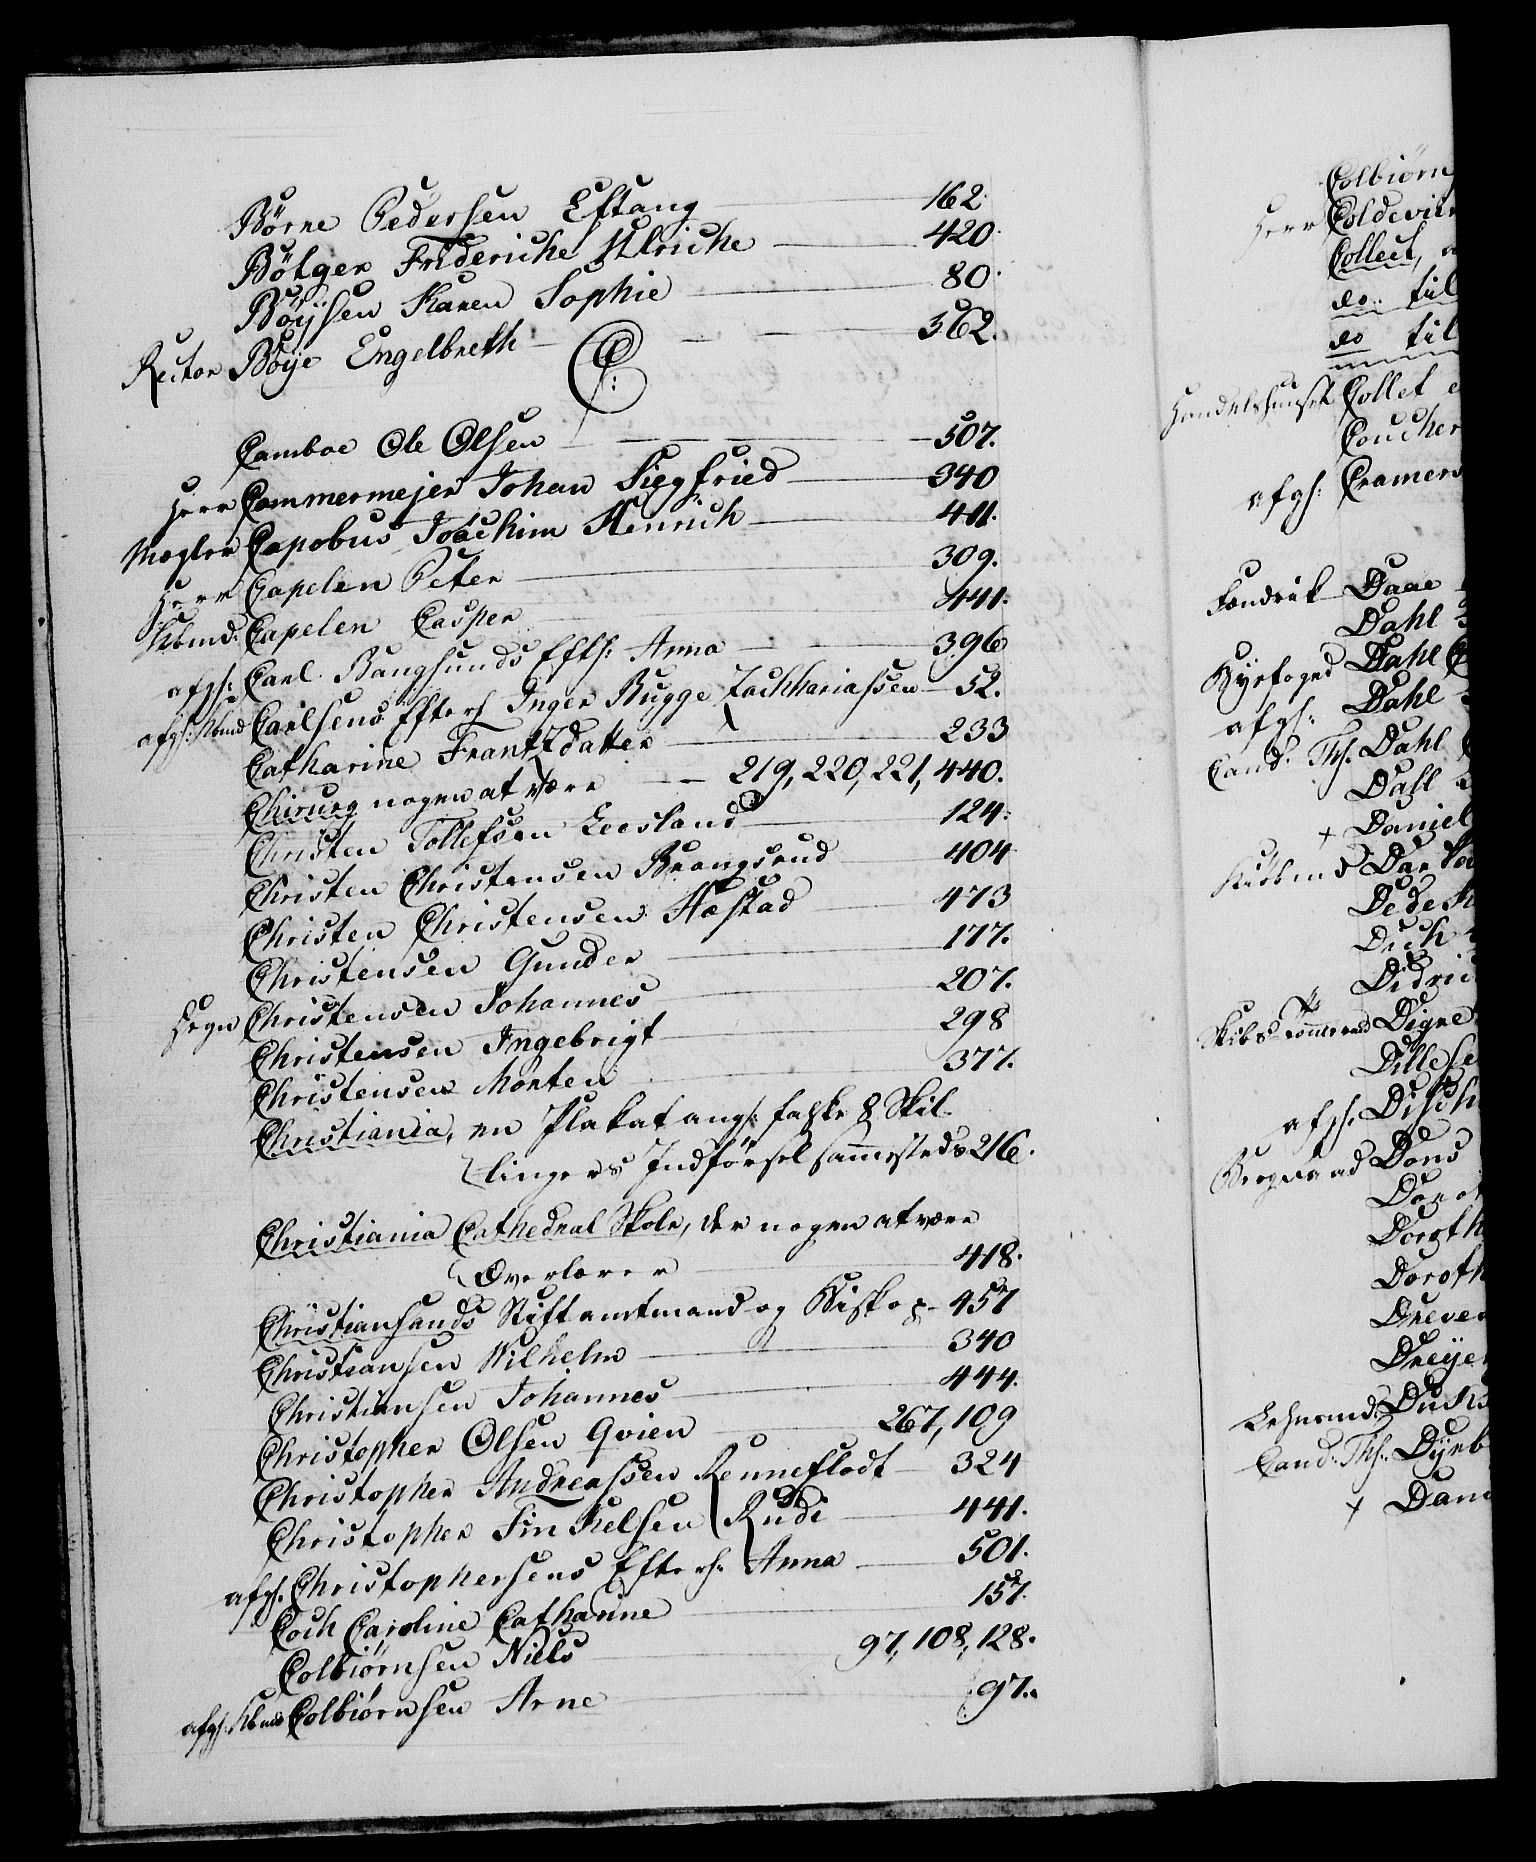 Börne Pedersen Eftang 162.
Bötger Frideriche Ulriche 420.
Böÿsen Karen Sophie 80.
Rector Böije Engelbreth 362.
C:
Camboe Ole Olsen 507.
Herr Cammermejer Johan Siegfried 340
Mægler Capobus Joachim Henrich 411.
Herr Capelen Peter 309.
Kbmd: Capelen Casper 441.
afgs: Carl Bangsunds Efts: Anna 396
afgs: Kbmd Carlsens Efters Inger Bugge Zachhariassen 52.
Catharine Frantzdatter 233
Chirurg nogen at være 219, 220, 221, 440.
Christen Tollefsen Leesland 124.
Christen Christensen Brangsrud 404
Christen Christensen Hæstad 473
Christensen Gunder 177.
Sogn Christensen Johannes 207.
Christensen Ingebrigt 298
Christensen Morten 377.
Christiania, en Plakat angs: falske 8 Skil-
lingers Indförsel sammesteds 216.
Christiania Cathedral Skole, der nogen at være
Overlærer 418.
Christiansands Stiftamtmand og Biskop 457
Christiansen Wilhelm 340
Christiansen Johannes 444.
Christopher Olsen Qvien 267, 109
Christopher Andreassen Renneflodt 324
Christopher Finkelsen Rudi 441.
afgs. Christophersens Efters: Anna 501.
Coch Caroline Catharine 157.
Colbiørnsen Niels 97, 108, 128.
afgs: Kbmd Colbiørnsen Arne 97.
Colbiörn
Herr Coldevin
Collect,
do. til
do til
Handelshuuset Collet
Coucher
afgs: Cramers
Fændrik Daae
Dahl
Byefoged Dahl
afgs: Dahl
Cand. Ths. Dahl
Dahl
+ Daniel
Kiöbmd
Dedek
Dich
Didric
Skibs Tömmermd Digre
Dillese
afgs. Disch
Bergraad Dons
Doro
Doroth
Doroth
Dreve
Dreÿe
Lehnsmd: Duchs
Cand: Ths: Dÿrb
+ Dan